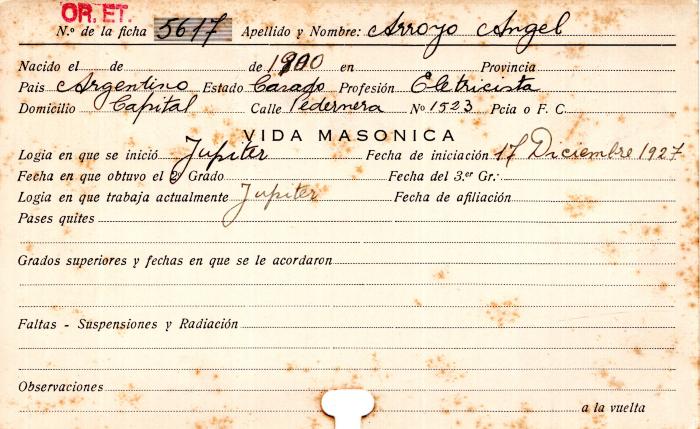 OR. ET.
N.º de la ficha 5617 Apellido y Nombre: Arroyo Angel
Nacido el de de 1900 en Provincia
Pais Argentino Estado Casado Profesión Eletricista
Domicilio Capital Calle Pedernera Nº 1523 Pcia o F. C.
VIDA MASONICA
Logia en que se inició Jupiter Fecha de iniciación 17 Diciembre 1927
Fecha en que obtuvo el 2º Grado Fecha del 3.er Gr:.
Logia en que trabaja actualmente Jupiter Fecha de afiliación
Pases quites
Grados superiores y fechas en que se le acordaron
Faltas - Suspensiones y Radiación
Observaciones
a la vuelta